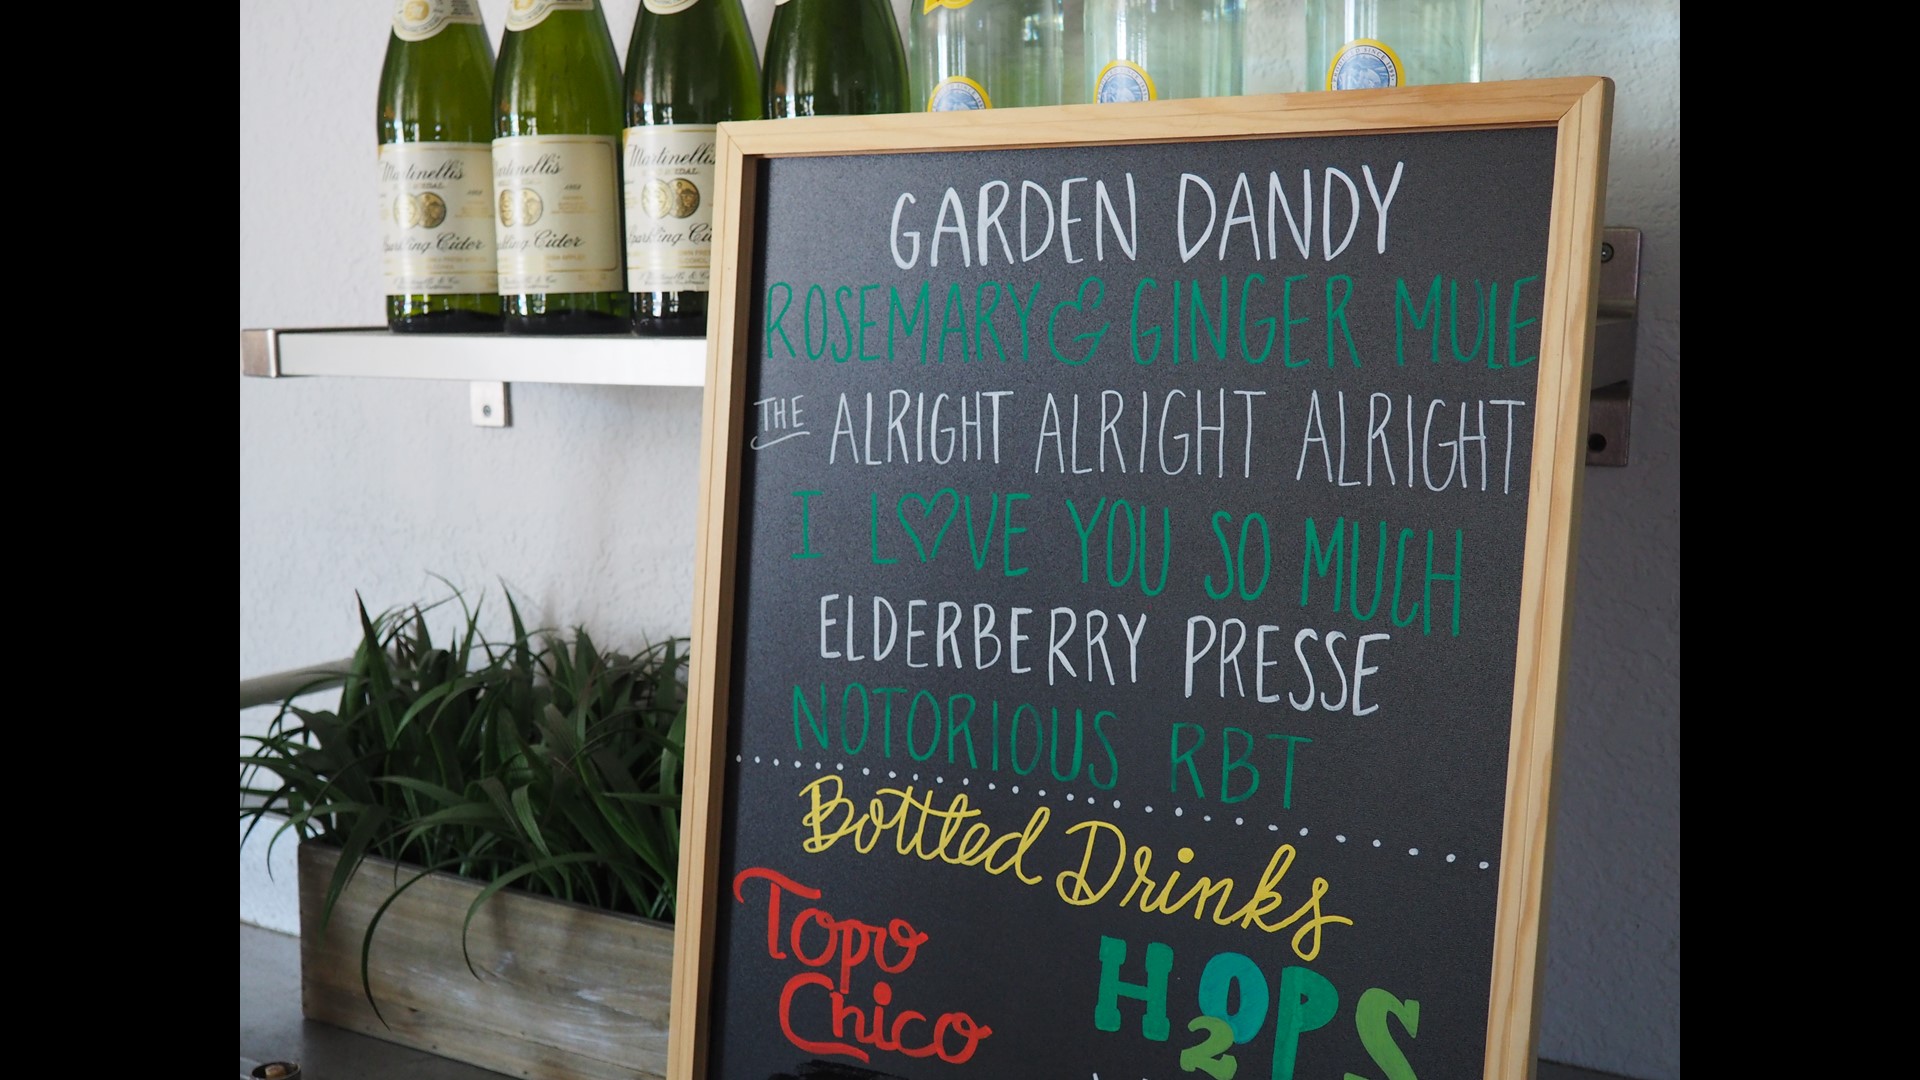 Martinelli's
Martinelli's
Martinelli's
GOLD MEDAL
Sparkling Cider
Sparkling Cider
GARDEN DANDY
ROSEMARY & GINGER MULE
THE ALRIGHT ALRIGHT ALRIGHT
I LOVE YOU SO MUCH
ELDERBERRY PRESSE
NOTORIOUS RBT
Bottled Drinks
Topo
Chico
H2OPS